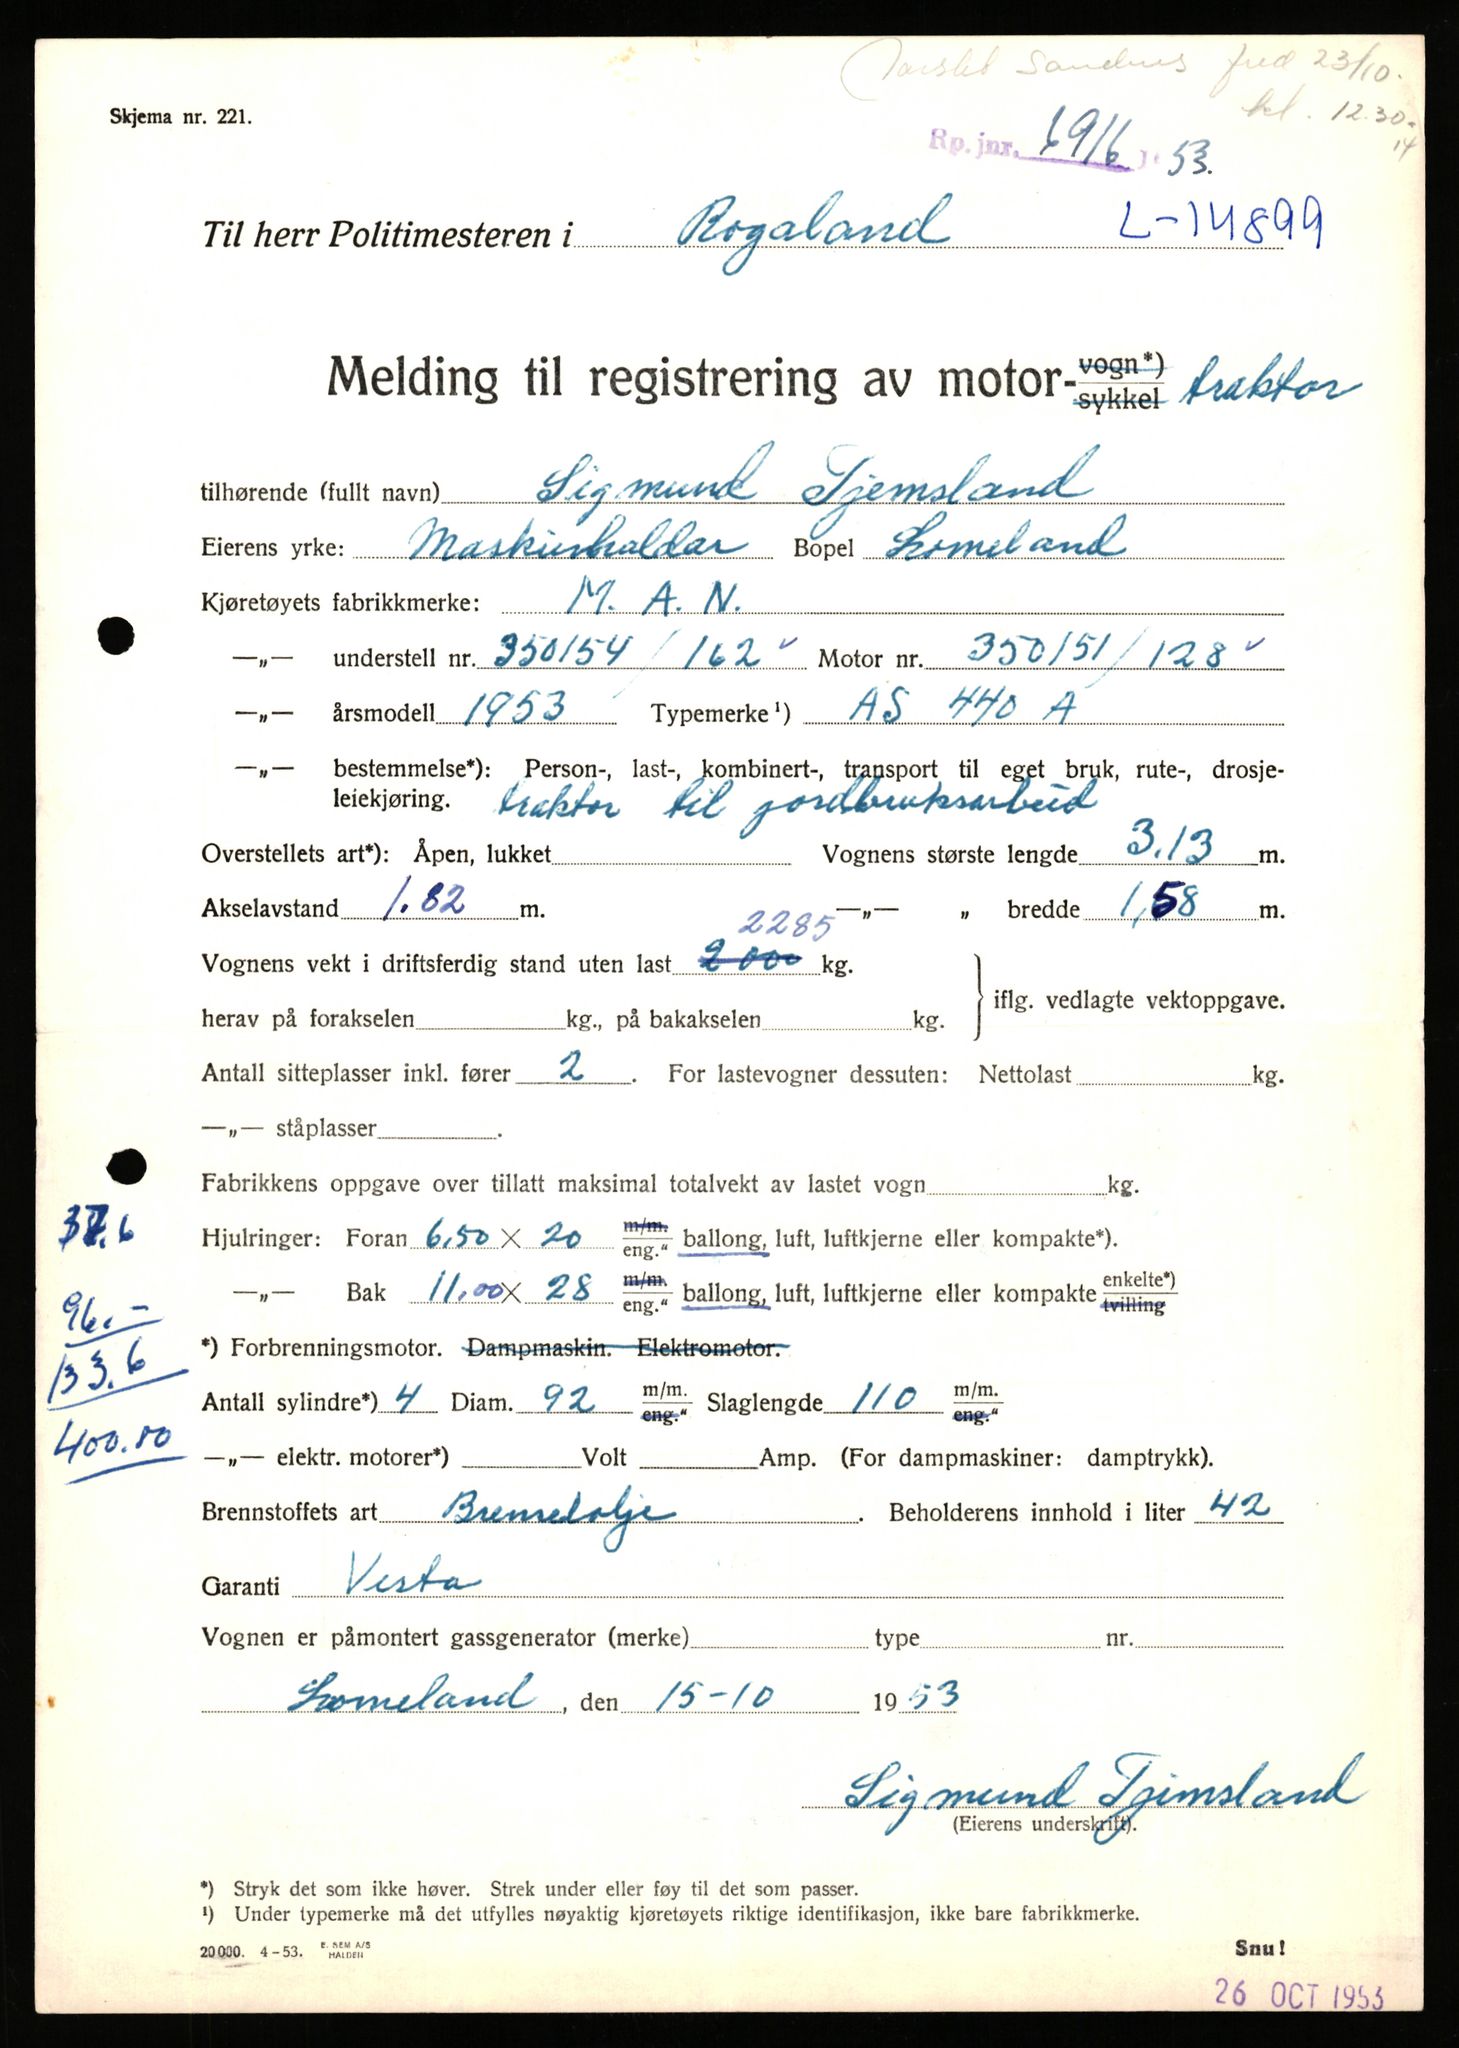 Sandnes fred 23/10.
kl. 12.30-
14
Skjema nr. 221.
Rp. jnr. 6916 53.
Til herr Politimesteren i Rogaland L-14899
Melding til registrering av motor-vogn*) sykkel traktor
tilhørende (fullt navn) Sigmund Tjemsland
Eierens yrke: Maskinhaldar Bopel Lomeland
Kjøretøyets fabrikkmerke: M. A. N.
—„— understell nr. 350154/162 Motor nr. 350151/128
—„— årsmodell 1953 Typemerke¹) AS 440 A
—„— bestemmelse*): Person-, last-, kombinert-, transport til eget bruk, rute-, drosje-
leiekjøring. traktor til jordbruksarbeid
Overstellets art*): Åpen, lukket Vognens største lengde 3.13 m.
Akselavstand 1.82 m. —„— „ bredde 1,58 m.
2285
Vognens vekt i driftsferdig stand uten last 2000 kg.
herav på forakselen kg., på bakakselen kg. iflg. vedlagte vektoppgave.
Antall sitteplasser inkl. fører 2. For lastevogner dessuten: Nettolast kg.
—„— ståplasser.
Fabrikkens oppgave over tillatt maksimal totalvekt av lastet vogn kg.
Hjulringer: Foran 6,50 × 20 m/m. eng.“ ballong, luft, luftkjerne eller kompakte*).
—„— Bak 11,00 × 28 m/m. eng.“ ballong, luft, luftkjerne eller kompakte enkelte*) tvilling
96.-
133.6
400.80
*) Forbrenningsmotor. Dampmaskin. Elektromotor.
Antall sylindre*) 4 Diam. 92 m/m. eng.“ Slaglengde 110 m/m. eng.“
—„— elektr. motorer*) Volt Amp. (For dampmaskiner: damptrykk).
Brennstoffets art Brenselolje. Beholderens innhold i liter 42
Garanti Vesta
Vognen er påmontert gassgenerator (merke) type nr.
Lomeland, den 15-10 1953
Sigmund Tjemsland
(Eierens underskrift).
*) Stryk det som ikke høver. Strek under eller føy til det som passer.
¹) Under typemerke må det utfylles nøyaktig kjøretøyets riktige identifikasjon, ikke bare fabrikkmerke.
20 000. 4-53. E. SEM A/S HALDEN
Snu!
26 OCT 1953